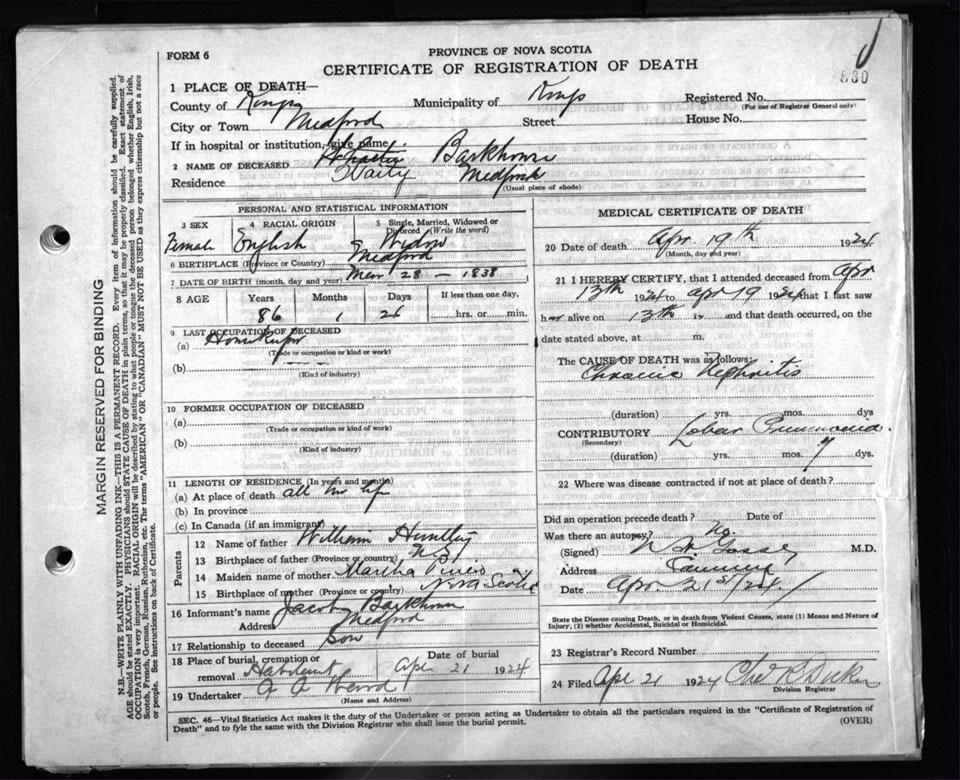 FORM 6
PROVINCE OF NOVA SCOTIA
CERTIFICATE OF REGISTRATION OF DEATH
830
1 PLACE OF DEATH—
County of Kings Municipality of Kings Registered No.
(For use of Registrar General only)
City or Town Medford Street House No.
If in hospital or institution, give name
2 NAME OF DECEASED Barkhouse
Residence Medford
(Usual place of abode)
PERSONAL AND STATISTICAL INFORMATION
3 SEX 4 RACIAL ORIGIN 5 Single, Married, Widowed or Divorced (Write the word)
Female English Widow
6 BIRTHPLACE (Province or Country) Medford
7 DATE OF BIRTH (month, day and year) 28 — 1838
8 AGE Years Months Days If less than one day.
86 1 26 hrs. or min.
9 LAST OCCUPATION OF DECEASED
(a) Housekeeper
(Trade or occupation or kind or work)
(b)
(Kind of industry)
10 FORMER OCCUPATION OF DECEASED
(a)
(Trade or occupation or kind of work)
(b)
(Kind of industry)
11 LENGTH OF RESIDENCE (In years and months)
(a) At place of death all her life
(b) In province
(c) In Canada (if an immigrant)
Parents
12 Name of father William Huntley
13 Birthplace of father (Province or country) N.S.
14 Maiden name of mother Martha
15 Birthplace of mother (Province or country) Nova Scotia
16 Informant's name Jacob Barkhouse
Address Medford
17 Relationship to deceased Son
18 Place of burial, cremation or removal Date of burial
Habitant Apr 21 1924
19 Undertaker
(Name and Address)
MEDICAL CERTIFICATE OF DEATH
20 Date of death Apr. 19th 1924
(Month, day and year)
21 I HEREBY CERTIFY, that I attended deceased from Apr
13th 1924 to Apr 19 1924 that I last saw
her alive on 13th 19 and that death occurred, on the
date stated above, at m.
The CAUSE OF DEATH was as follows:
Chronic Nephritis
(duration) yrs. mos. dys
CONTRIBUTORY Lobar Pneumonia
(Secondary)
(duration) yrs. mos. 7 dys.
22 Where was disease contracted if not at place of death?
Did an operation precede death? Date of
Was there an autopsy? No
(Signed) M.D.
Address Canning
Date Apr. 21st/24
State the Disease causing Death, or in death from Violent Causes, state (1) Means and Nature of Injury, (2) whether Accidental, Suicidal or Homicidal.
23 Registrar's Record Number
24 Filed Apr 21 1924
Division Registrar
SEC. 46—Vital Statistics Act makes it the duty of the Undertaker or person acting as Undertaker to obtain all the particulars required in the "Certificate of Registration of
Death" and to fyle the same with the Division Registrar who shall issue the burial permit. (OVER)
MARGIN RESERVED FOR BINDING
N.B.—WRITE PLAINLY WITH UNFADING INK—THIS IS A PERMANENT RECORD. Every item of information should be carefully supplied.
AGE should be stated EXACTLY. PHYSICIANS should STATE CAUSE OF DEATH in plain terms, so that it may be properly classified. Exact statement of
OCCUPATION is very important. RACIAL ORIGIN will be described by stating to what people or tongue the deceased person belonged whether English, Irish,
Scotch, French, German, Russian, Ruthenian, etc. The terms "AMERICAN" OR "CANADIAN" MUST NOT BE USED as they express citizenship but not a race
or people. See instructions on back of Certificate.